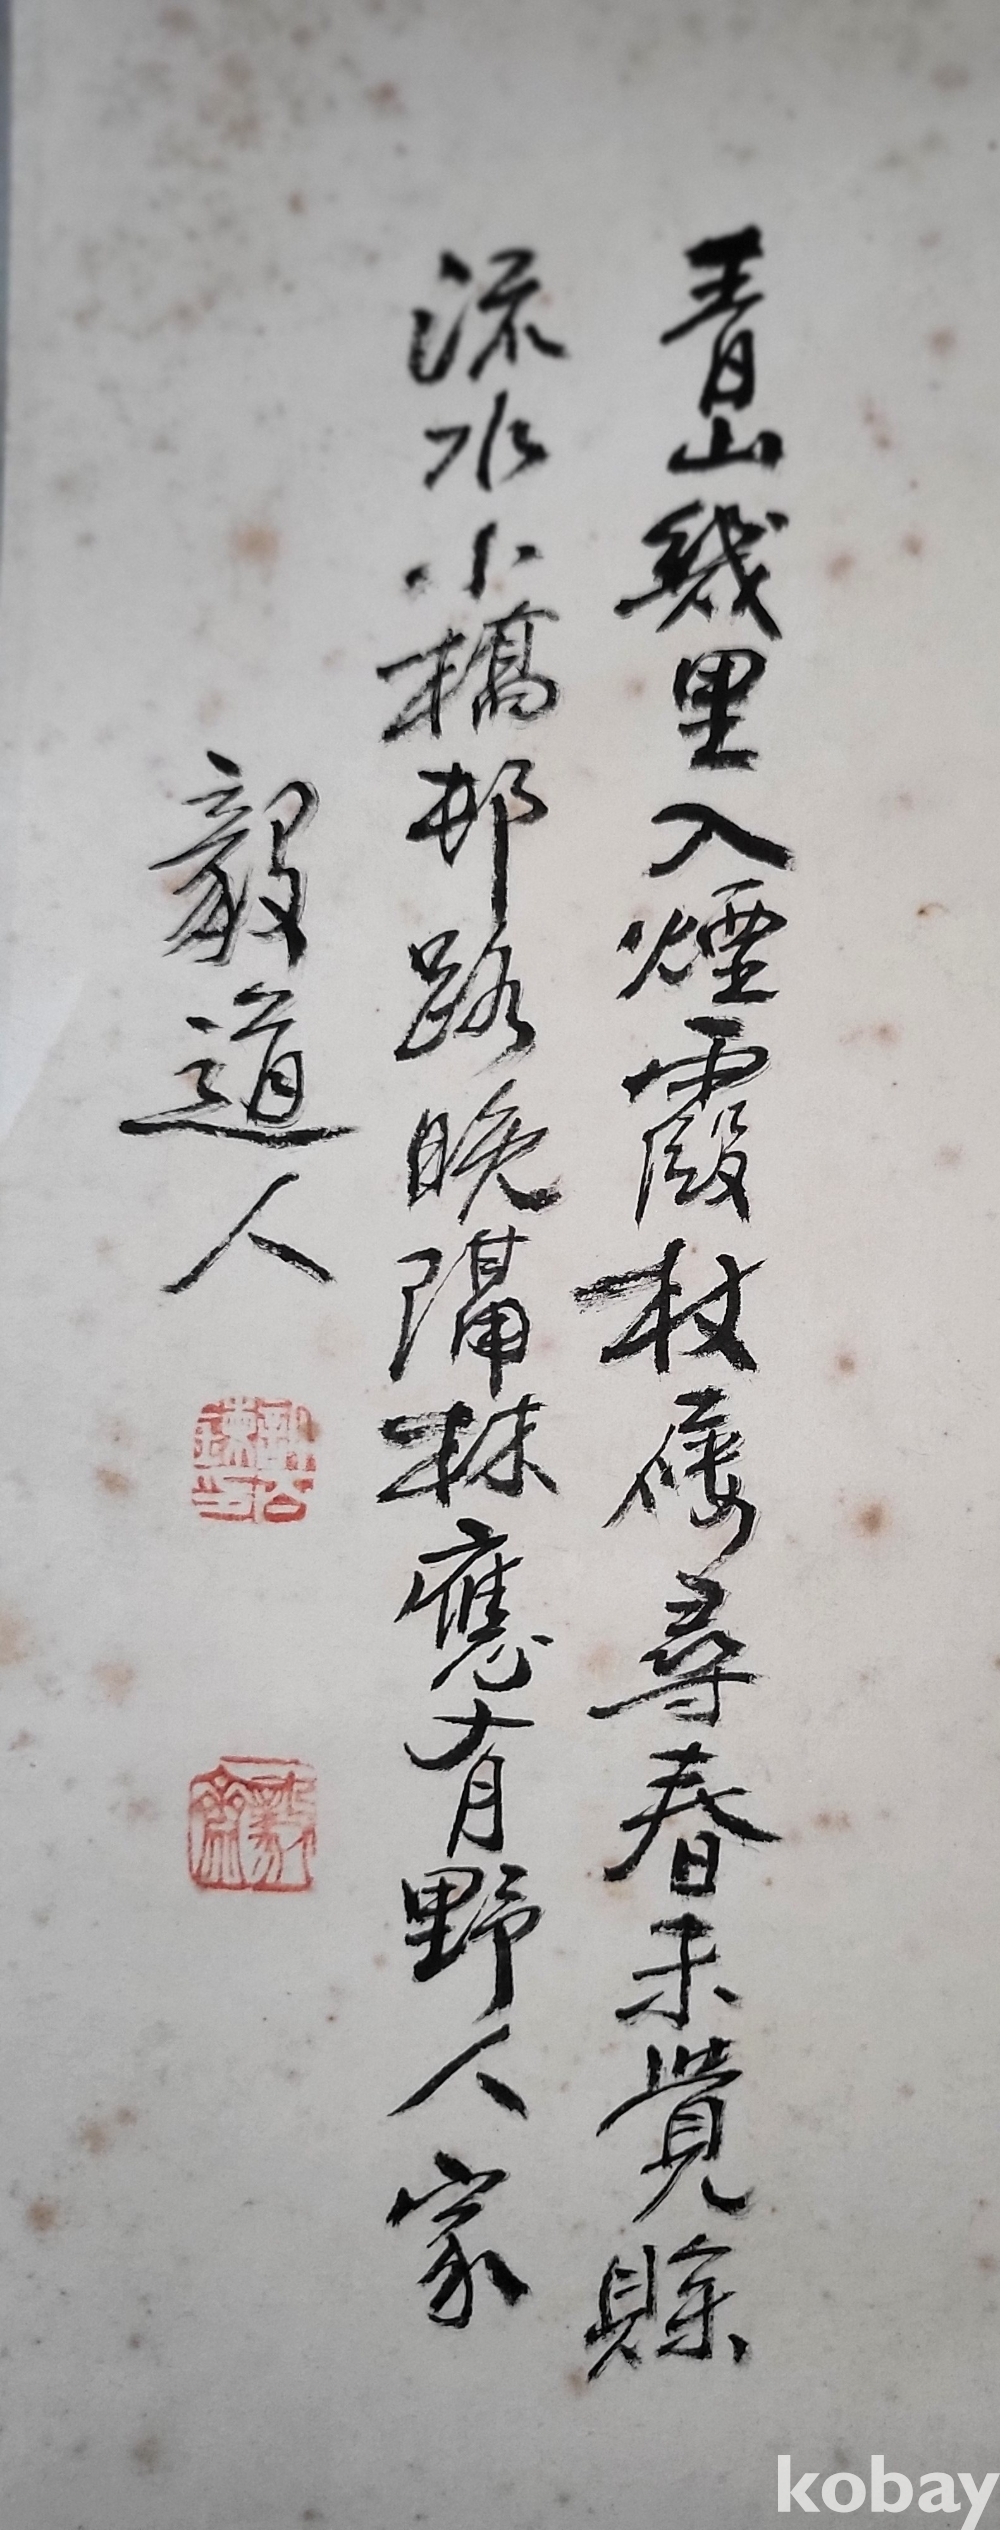 青山幾里入煙霞杖屨尋春未覺賖
流水小橋邨路晚隔林應有野人家
毅道人
kobay